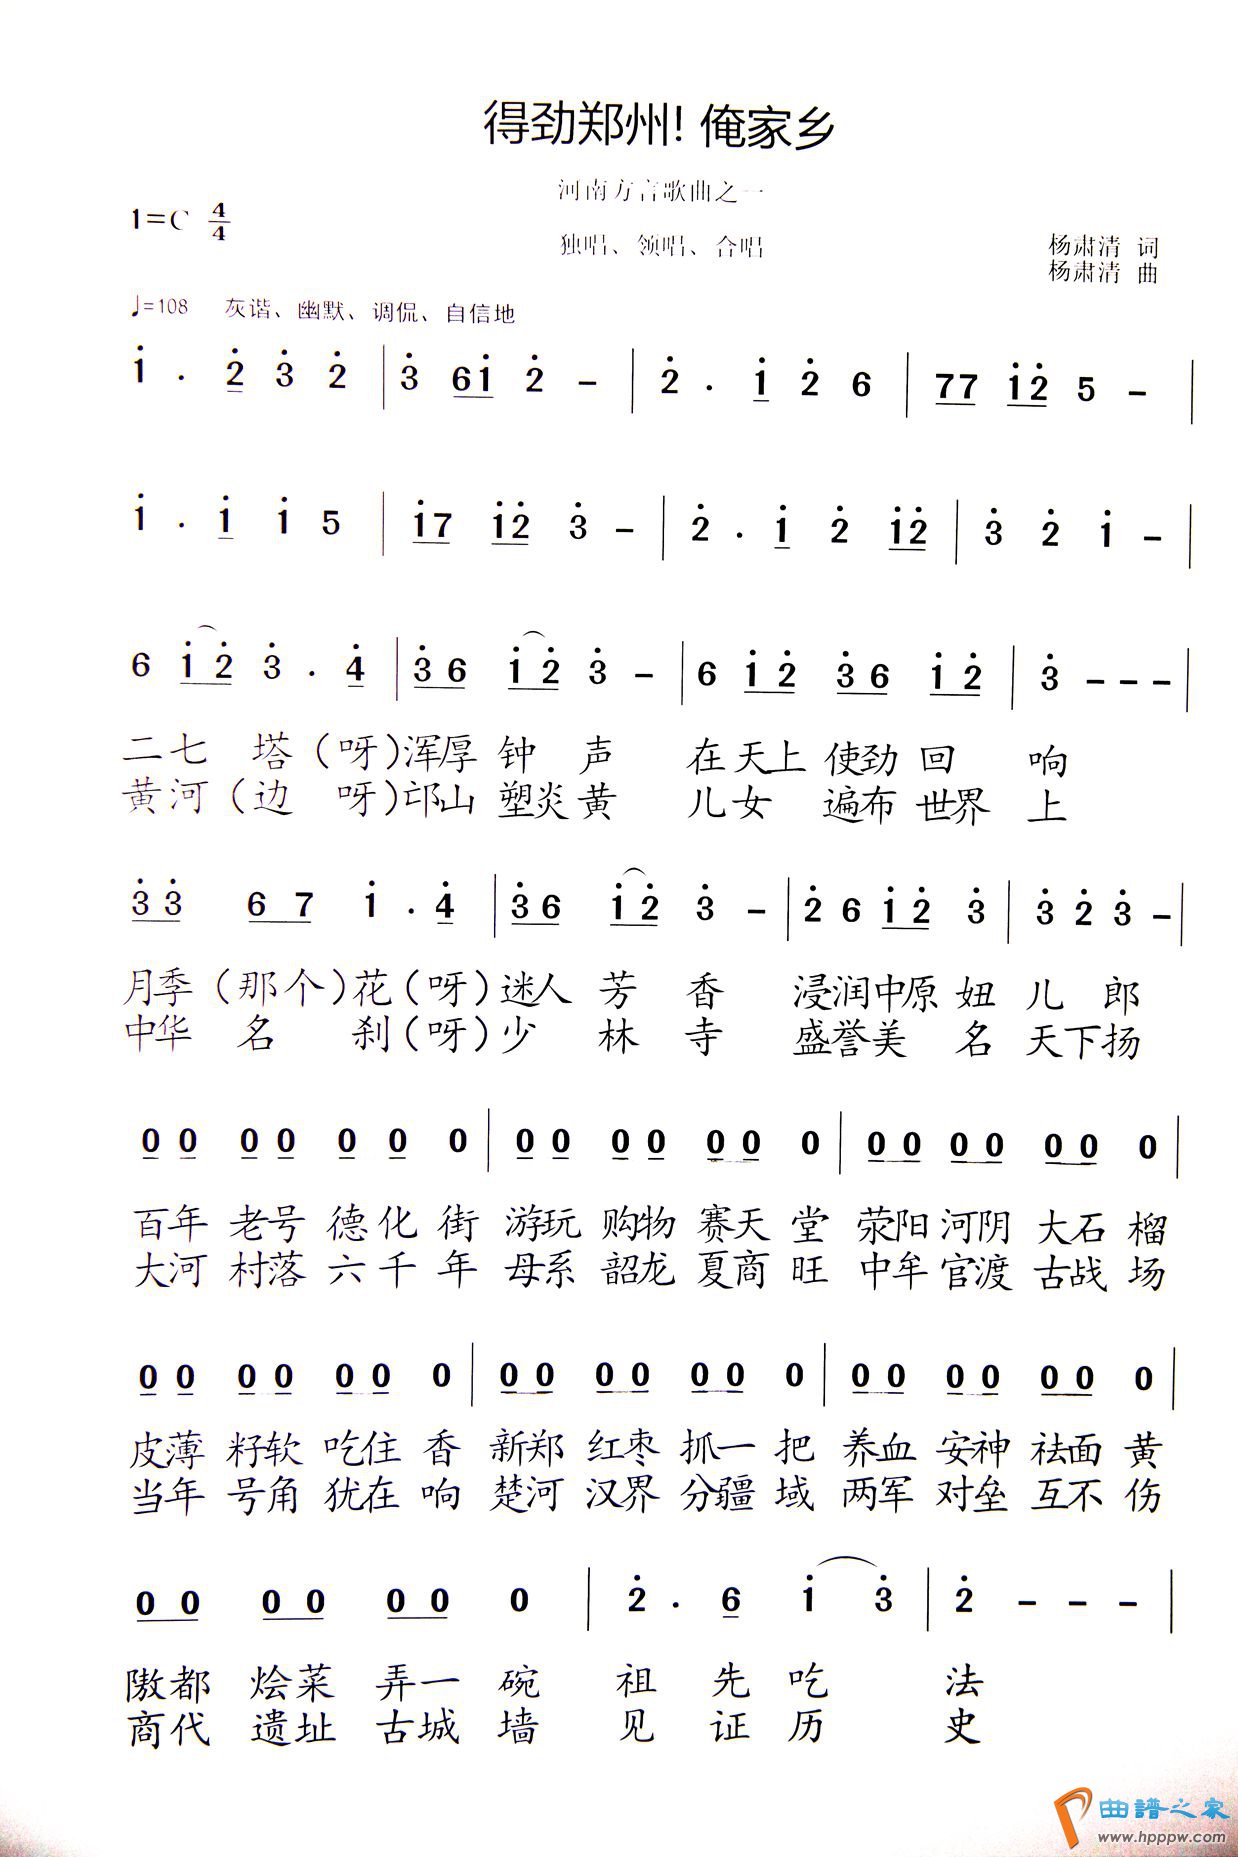 得劲郑州!俺家乡
河南方言歌曲之一
1=C 4/4
独唱、领唱、合唱
杨肃清 词
杨肃清 曲
♩=108 灰谐、幽默、调侃、自信地
1 . 2 3 2 | 3 61 2 – | 2 . 1 2 6 | 77 12 5 – |
1 . 1 1 5 | 17 12 3 – | 2 . 1 2 12 | 3 2 1 – |
6 12 3 . 4 | 36 12 3 – | 6 12 36 12 | 3 – – – |
二七 塔(呀)浑厚 钟 声 在天上 使劲 回 响
黄河(边 呀)邙山 塑炎黄 儿女 遍布 世界 上
33 67 1 . 4 | 36 12 3 – | 26 12 3 | 3 2 3 – |
月季(那个)花(呀)迷人 芳 香 浸润中原 妞 儿 郎
中华 名 刹(呀)少 林 寺 盛誉美 名 天下扬
00 00 00 0 | 00 00 00 0 | 00 00 00 0 |
百年 老号 德化 街 游玩 购物 赛天 堂 荥阳 河阴 大石 榴
大河 村落 六千 年 母系 韶龙 夏商 旺 中牟 官渡 古战 场
00 00 00 0 | 00 00 00 0 | 00 00 00 0 |
皮薄 籽软 吃住 香 新郑 红枣 抓一 把 养血 安神 祛面 黄
当年 号角 犹在 响 楚河 汉界 分疆 域 两军 对垒 互不 伤
00 00 00 0 | 2 . 6 1 3 | 2 – – – |
隞都 烩菜 弄一 碗 祖 先 吃 法
商代 遗址 古城 墙 见 证 历 史
曲谱之家
www.hpppw.com